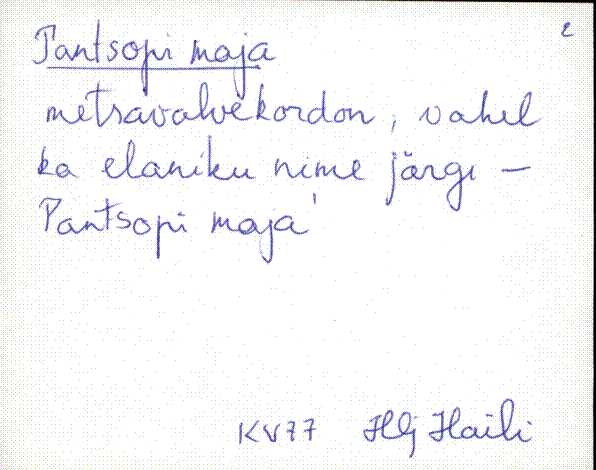 2
Pantsopi maja
metsavahvekordon, vahel
ka elaniku nime järgi –
Pantsopi maja'
KV77 Hlj Haili